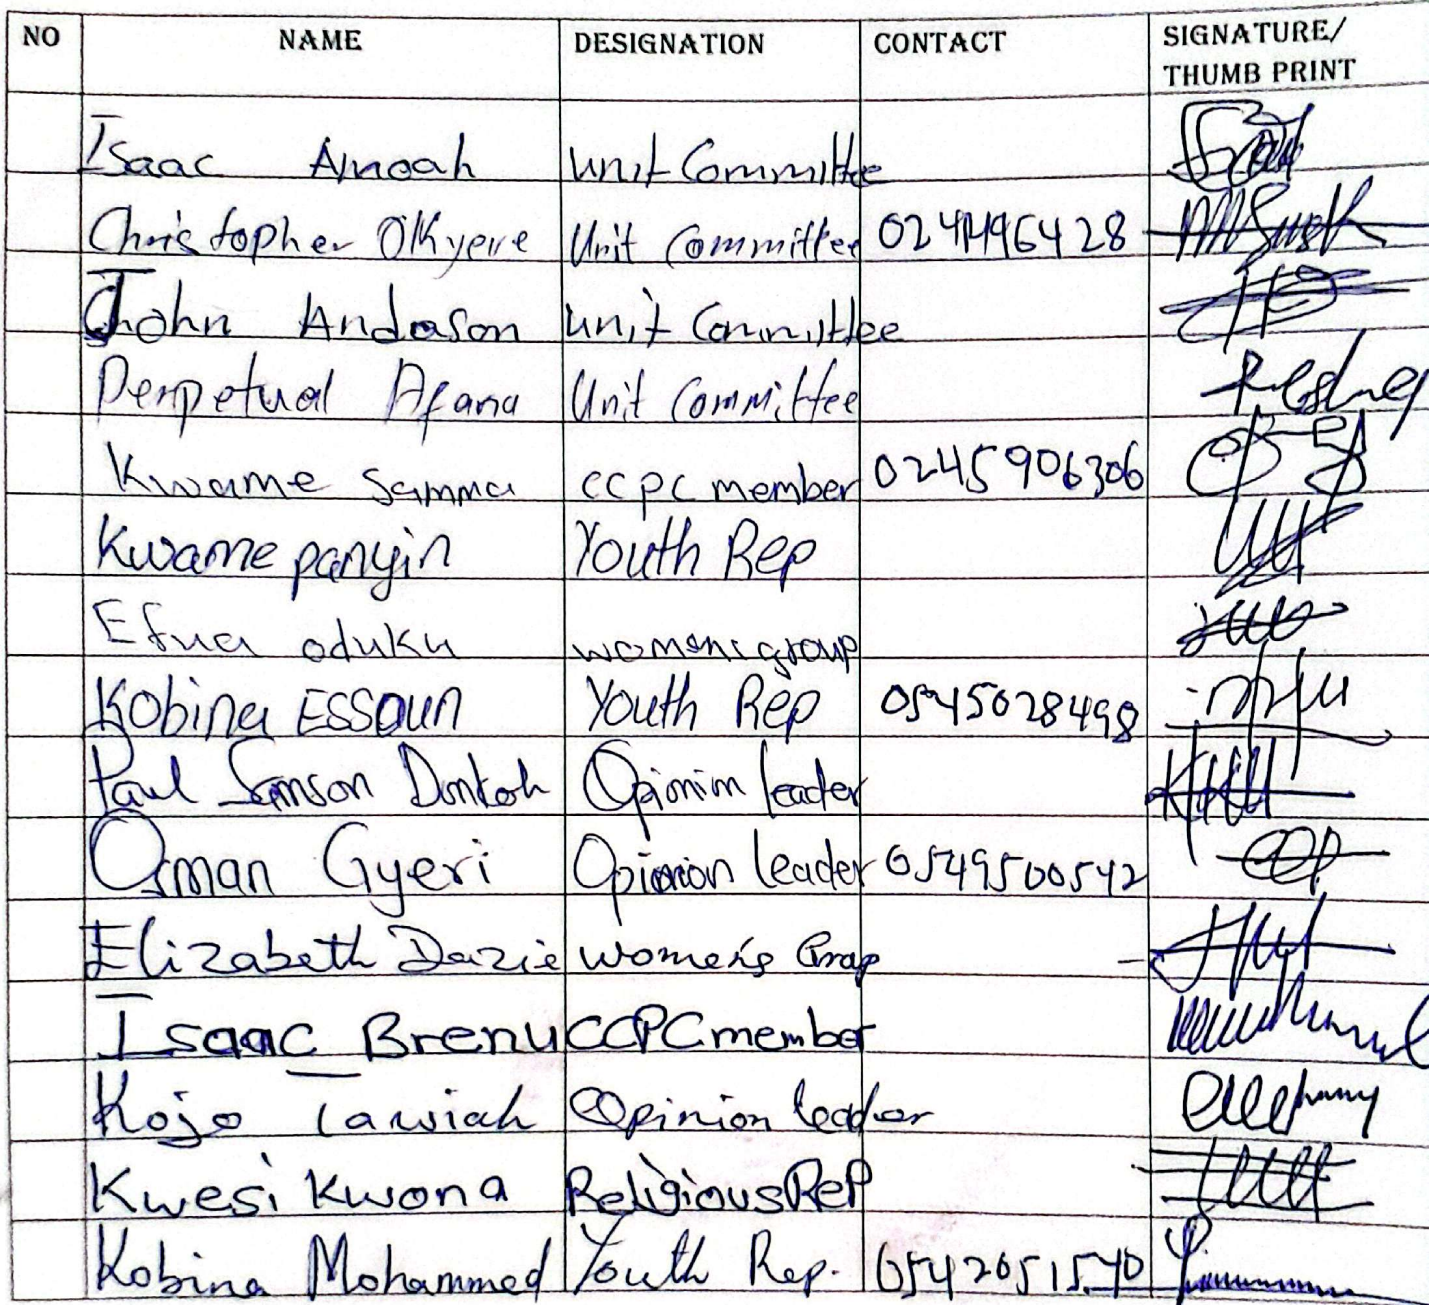 NO NAME DESIGNATION CONTACT SIGNATURE/
THUMB PRINT
Isaac Amoah unit Committee
Christopher Okyere Unit Committee
John Andason unit Committee
Perpetual Afana Unit Committee
Kwame Samma CCPC member 0245906306
Kwame panyin Youth Rep
Efua oduku womens group
Kobina ESSOun Youth Rep 0545028498
Paul Samson Dontoh Opinion leader
Osman Gyeri Opinion leader 0549500542
Elizabeth Dazie women's Group
Isaac Brenu CCPC member
Kojo Tawiah Opinion leader
Kwesi Kwona Religious Rep
Kobina Mohammed Youth Rep. 0542051540